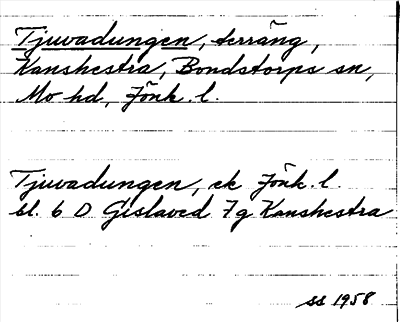 Tjuvadungen, terräng,
Kanshestra, Bondstorps sn,
Mo hd, Jönk. l.
Tjuvadungen, ek Jönk. l.
bl. 6 D Gislaved 7g Kanshestra
ss 1958